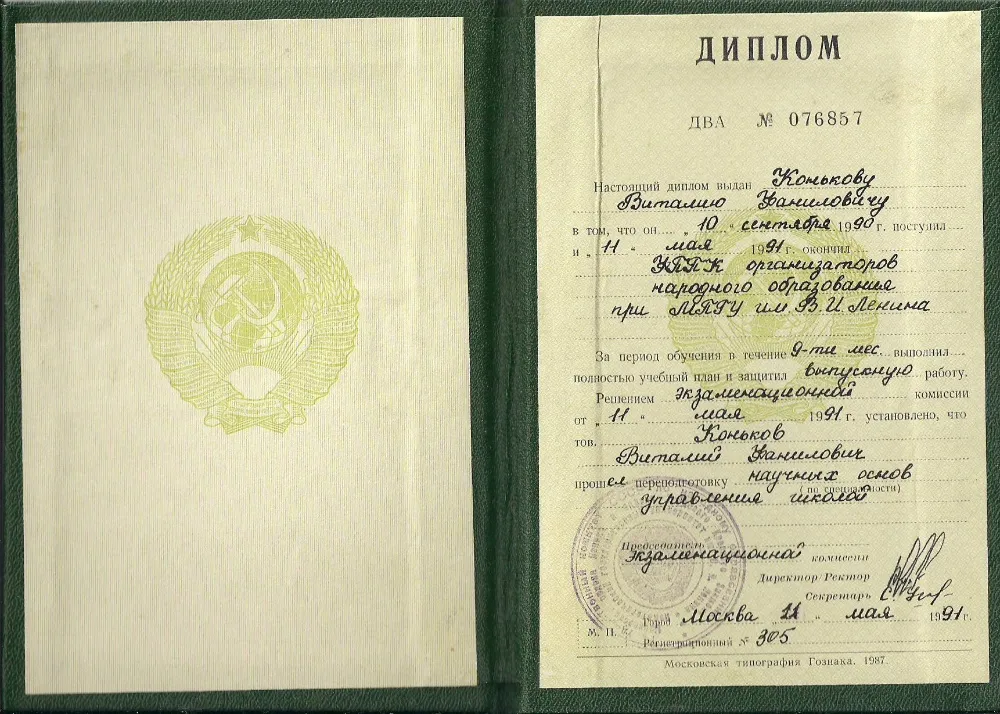 ДИПЛОМ
ДВА № 076857
Настоящий диплом выдан Конькову
Виталию Фаниловичу
в том, что он „ 10 “ сентября 1990 г. поступил
и „ 11 “ мая 1991 г. окончил
УППК организаторов
народного образования
при МПГУ им. В.И. Ленина
За период обучения в течение 9-ти мес. выполнил
полностью учебный план и защитил выпускную работу.
Решением экзаменационной комиссии
от „ 11 “ мая 1991 г. установлено, что
тов. Коньков
Виталий Фанилович
прошел переподготовку научных основ
(по специальности)
управления школой
Председатель
экзаменационной комиссии
Директор/Ректор
Секретарь
Город Москва „ 11 “ мая 1991 г.
М. П. Регистрационный № 305
Московская типография Гознака. 1987.